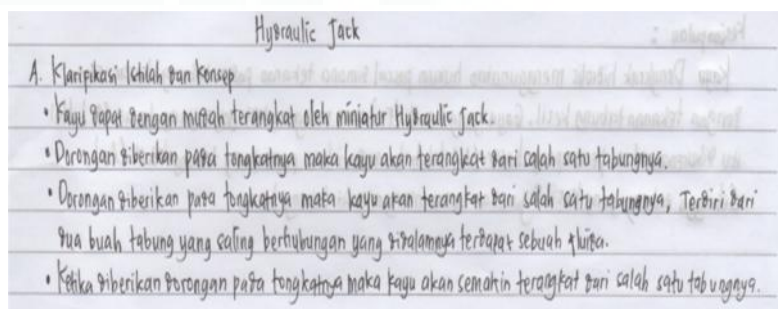 Hydraulic Jack
A. Klarifikasi Istilah dan Konsep
• Kayu dapat dengan mudah terangkat oleh miniatur Hydraulic Jack.
• Dorongan diberikan pada tongkatnya maka kayu akan terangkat dari salah satu tabungnya.
• Dorongan diberikan pada tongkatnya maka kayu akan terangkat dari salah satu tabungnya, Terdiri dari
dua buah tabung yang saling berhubungan yang didalamnya terdapat sebuah fluida.
• Ketika diberikan dorongan pada tongkatnya maka kayu akan semakin terangkat dari salah satu tabungnya.